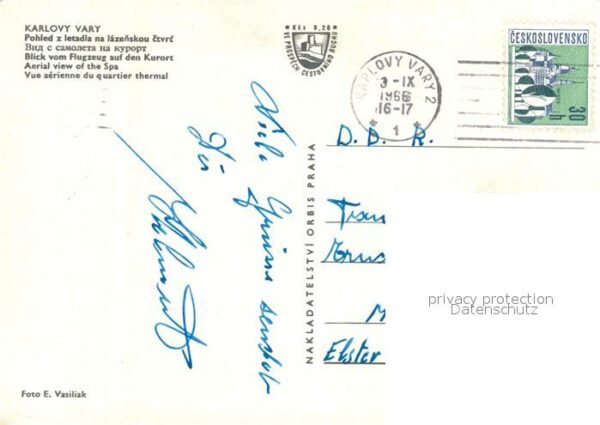 KARLOVY VARY
Pohled z letadla na lázeňskou čtvrť
Вид с самолета на курорт
Blick vom Flugzeug auf den Kurort
Aerial view of the Spa
Vue aérienne du quartier thermal
Kčs 0,20
VE PROSPĚCH CESTOVNÍHO RUCHU
KARLOVY VARY 2
3-IX
1966
16-17
1
ČESKOSLOVENSKO
30
h
Viele Grüsse sendet
Dir
Helmut
NAKLADATELSTVÍ ORBIS PRAHA
D. D. R.
M
Elster
privacy protection
Datenschutz
Foto E. Vasiliak